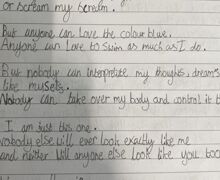 Or scream my scream.
But anyone can Love the colour blue.
Anyone can Love to Swim as much as I do.
But nobody can interpretise my thoughts, dreams
like myself.
Nobody can take over my body and control it b
I am just this one.
Nobody else will ever look exactly like me
and neither will anyone else look like you too